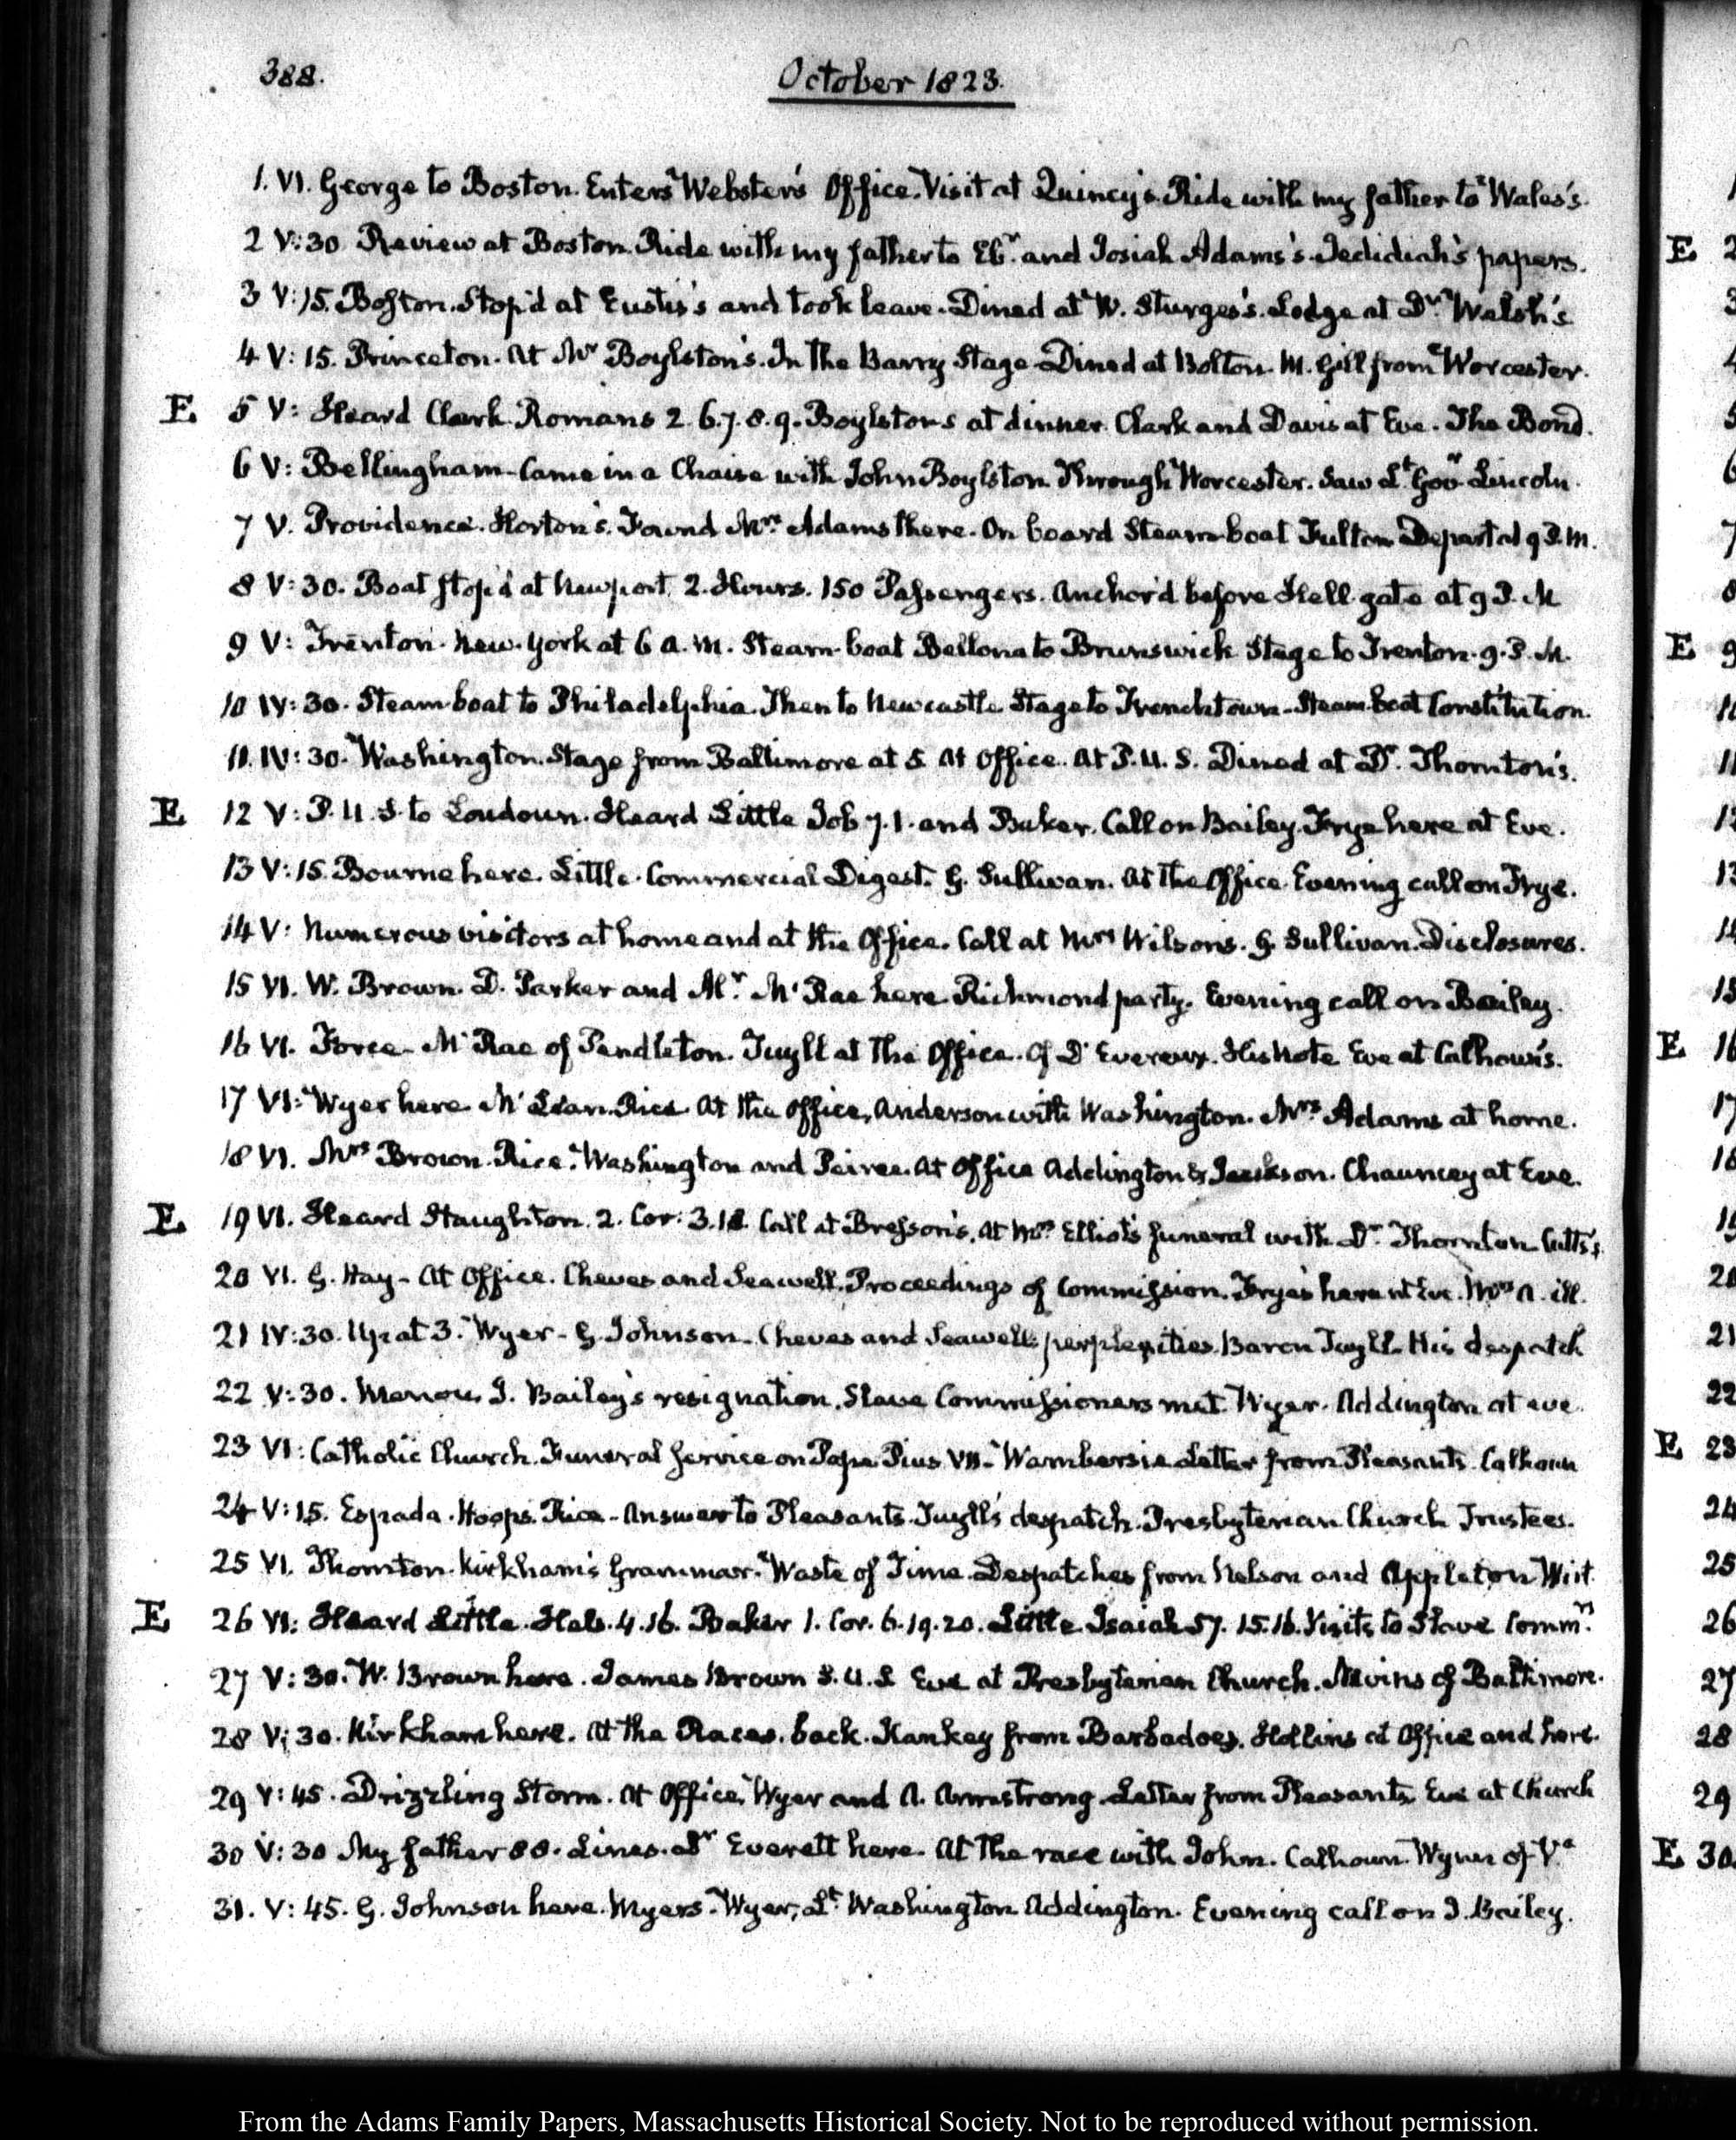 388.
October 1823.
1. VI. George to Boston. Enters Webster's Office. Visit at Quincy's. Ride with my father to Wales's.
2 V:30. Review at Boston. Ride with my father to Ebr. and Josiah Adams's. Jedidiah's papers.
3 V:15. Boston. Stop'd at Eustis's and took leave. Dined at W. Sturges's. Lodge at Dr. Welsh's
4 V:15. Princeton. At Mr Boylston's. In the Barry Stage. Dined at Bolton. M. Gill from Worcester.
E 5 V: Heard Clark. Romans 2. 6.7.8.9. Boylstons at dinner. Clark and Davis at Eve. The Bond.
6 V: Bellingham. Came in a Chaise with John Boylston. Through Worcester. Saw Lt Govr Lincoln.
7 V. Providence. Horton's. Found Mrs. Adams there. On board Steam-boat Fulton Departed 9 P.M.
8 V:30. Boat stop'd at Newport. 2. Hours. 150 Passengers. Anchor'd before Hell gate at 9 P.M
9 V: Trenton. New-York at 6 A.M. Steam-boat Bellona to Brunswick Stage to Trenton. 9. P.M.
10 IV:30. Steam boat to Philadelphia. Then to Newcastle Stage to Frenchtown. Steam boat Constitution.
11. IV:30. Washington. Stage from Baltimore at 5. At Office. At P.U.S. Dined at Dr. Thornton's.
E 12 V: P.U.S. to Loudoun. Heard Little Job 7.1. and Baker. Call on Bailey. Frye here at Eve.
13 V:15. Bourne here. Little. Commercial Digest. G. Sullivan. At the Office. Evening call on Frye.
14 V: Numerous visitors at home and at the Office. Call at Mrs Wilson's. G. Sullivan. Disclosures.
15 VI. W. Brown. D. Parker and Mr. McRae here Richmond party. Evening call on Bailey.
16 VI. Force. McRae of Pendleton. Tuyll at the Office. Of D'Evereux. His Note Eve at Calhoun's.
17 VI: Wyer here McLean. Rice. At the Office, Anderson with Washington. Mrs Adams at home.
18 VI. Mrs Brown. Rice. Washington and Peirce. At Office Addington & Jackson. Chauncey at Eve.
E 19 VI. Heard Staughton. 2. Cor: 3.18. Call at Bresson's. At Mrs. Elliot's funeral with Dr. Thornton Cutts's
20 VI. G. Hay. At Office. Cheves and Seawell. Proceedings of Commission. Fryes here at Eve. Mrs A. ill.
21 IV:30. Up at 3. Wyer. G. Johnson. Cheves and Seawell's perplexities. Baron Tuyll. His despatch
22 V:30. J. Bailey's resignation. Slave Commissioners met. Wyer. Addington at eve.
23 VI: Catholic Church. Funeral Service on Pope Pius VII. Wambersie. Letter from Pleasants. Calhoun
24 V:15. Espada. Hoops. Rice. Answer to Pleasants. Tuyll's despatch. Presbyterian Church Trustees.
25 VI. Thornton. Kirkham's Grammar. Waste of Time. Despatches from Nelson and Appleton Wirt.
E 26 VI: Heard Little. Hab. 4.16. Baker 1. Cor. 6.19.20. Little Isaiah 57. 15.16. Visits to Slave Commrs.
27 V:30. W. Brown here. James Brown S.U.S. Eve at Presbyterian Church. Nevins of Baltimore.
28 V:30. Kirkham here. At the Races. back. Kankey from Barbadoes. Hollins at Office and here.
29 V:45. Drizzling Storm. At Office. Wyer and A. Armstrong. Letter from Pleasants. Eve at Church
30 V:30 My father 88. Lines. Dr Everett here. At the race with John. Calhoun. Wynn of Va
31. V:45. G. Johnson here. Myers. Wyer, Lt. Washington Addington. Evening call on J. Bailey.
E 2
3
4
5
6
7
8
E 9
10
11
12
13
14
15
E 16
17
18
19
20
21
22
E 23
24
25
26
27
28
29
E 30
From the Adams Family Papers, Massachusetts Historical Society. Not to be reproduced without permission.